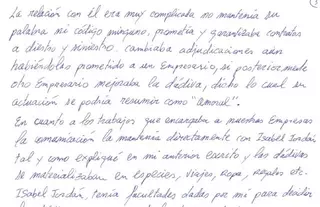 La relación con él era muy complicada no mantenía su
palabra ni código ninguno, prometía y garantizaba contratos
a diestro y siniestro. cambiaba adjudicaciones aún
habiéndolas prometido a un Empresario, si posteriormente
otro Empresario mejoraba la dádiva, dicho lo cual su
actuación se podría resumir como "amoral".
En cuanto a los trabajos que encargaba a nuestras Empresas
la comunicación la mantenía directamente con Isabel Jordán
tal y como expliqué en mi anterior escrito y las dádivas
se materializaban en especies, viajes, ropa, regalos etc.
Isabel Jordán, tenía facultades dadas por mí para decidir